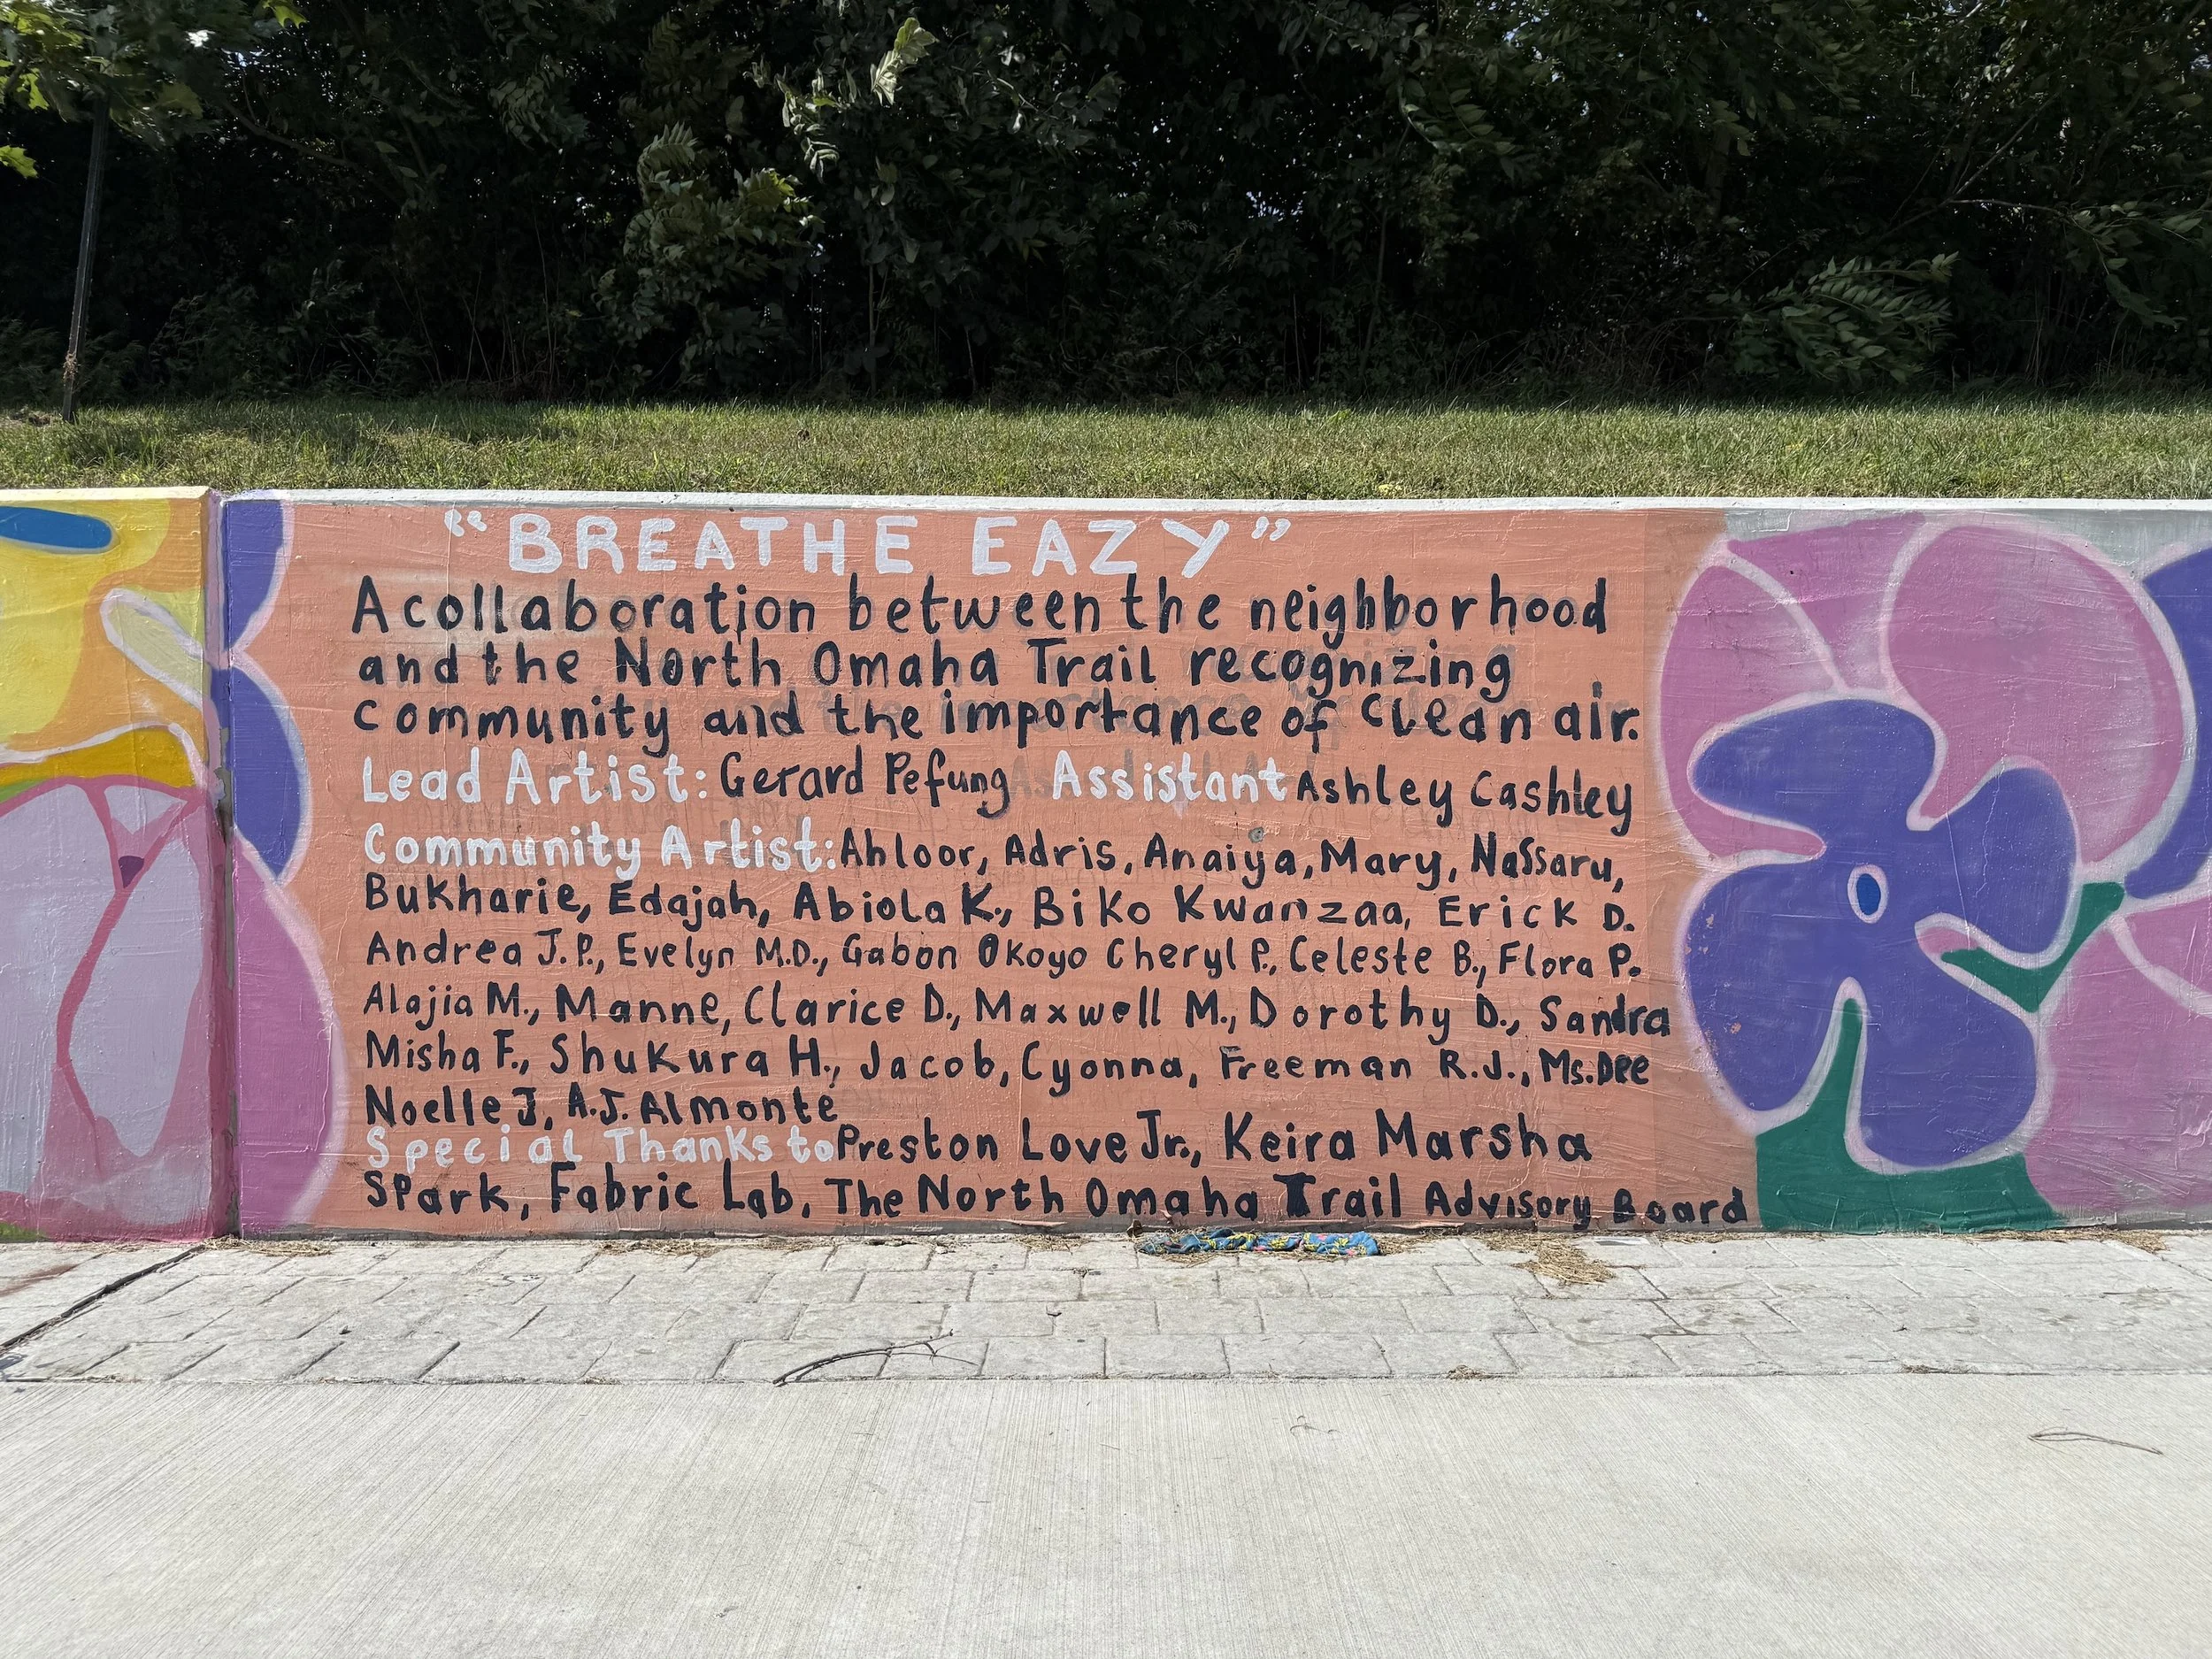 "BREATHE EAZY"
A collaboration between the neighborhood
and the North Omaha Trail recognizing
community and the importance of clean air.
Lead Artist: Gerard Pefung Assistant Ashley Cashley
Community Artist: Ahloor, Adris, Anaiya, Mary, Nassaru,
Bukharie, Edajah, Abiola K., Biko Kwanzaa, Erick D.
Andrea J.P., Evelyn M.D., Gabon Okoyo Cheryl P., Celeste B., Flora P.
Alajia M., Manne, Clarice D., Maxwell M., Dorothy D., Sandra
Misha F., Shukura H., Jacob, Cyonna, Freeman R.J., Ms. Dee
Noelle J, A.J. Almonte
Special Thanks to Preston Love Jr., Keira Marsha
Spark, Fabric Lab, The North Omaha Trail Advisory Board